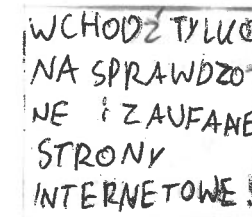 WCHODŹ TYLKO
NA SPRAWDZO
NE I ZAUFANE
STRONY
INTERNETOWE